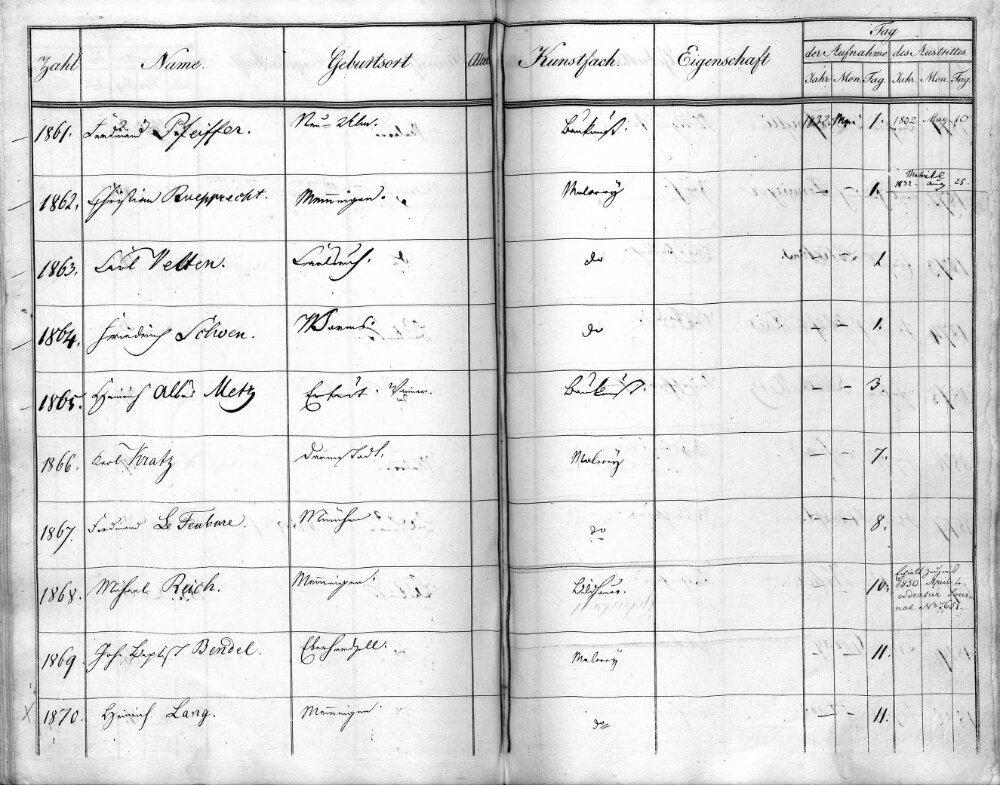 Zahl Name. Geburtsort Alter Kunstfach. Eigenschaft Tag
der Aufnahme des Austrittes
Jahr Mon. Tag Jahr. Mon. Tag.
1861. Ferdinand Pfeiffer. Neu-Ulm. Baukunst. 1832. May 1. 1832 May 10
1862. Christian Ruepprecht. Memmingen. Malerey - 1. 1832. Aug 25.
1863. Carl Velten. Carlsruh. do - 1.
1864. Friedrich Schoen. Worms. do - 1.
1865. Heinrich Metz Erfurt. Baukunst. - - 3.
1866. Karl Kratz Darmstadt. Malerey 7.
1867. Ferdinand Le Feubure. München do 8.
1868. Michael Reich. Memmingen. Bildhauer. 10.
1830
videatur Jour-
nal No 7681.
1869 Joh. Baptist Bendel. Malerey 11.
X 1870. Heinrich Lang. Memmingen do 11.